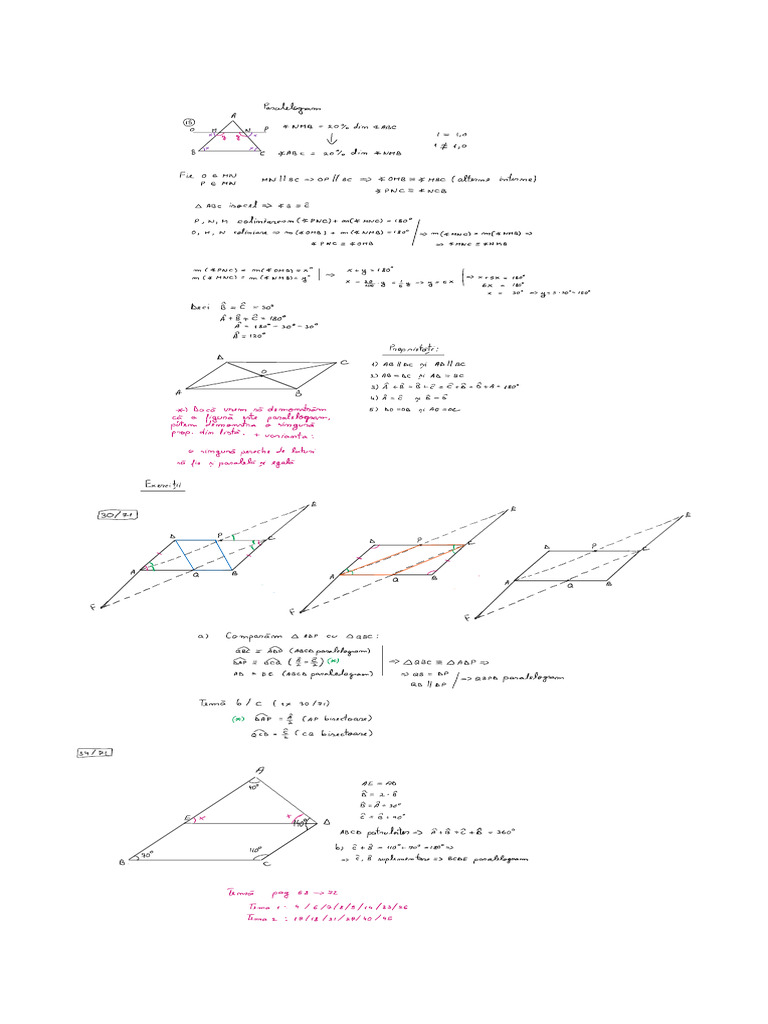 Paralelogram
15
A
O M N P
B C
∢NMB = 20% din ∢ABC
∢ABC = 20% din ∢NMB
Fie O ∈ MN
P ∈ MN
MN || BC => OP || BC => ∢OMB ≡ ∢MBC (alterne interne)
∢PNC ≡ ∢NCB
△ABC isocel => ∢B ≡ Ĉ
P, N, M coliniare => m(∢PNC) + m(∢MNC) = 180°
O, M, N coliniare => m(∢OMB) + m(∢NMB) = 180°
∢PNC ≡ ∢OMB
=> m(∢MNC) = m(∢NMB) =>
=> ∢MNC ≡ ∢NMB
m(∢PNC) = m(∢OMB) = x°
m(∢MNC) = m(∢NMB) = y°
=> x + y = 180°
=> x + 5x = 180°
6x = 180°
x = 30° => y = 5·30° = 150°
Deci B̂ = Ĉ = 30°
Â + B̂ + Ĉ = 180°
Â = 180° - 30° - 30°
Â = 120°
Proprietăți:
D C
O
A B
1) AB || DC și AD || BC
2) AB = DC și AD = BC
3) Â + B̂ = B̂ + Ĉ = Ĉ + D̂ = D̂ + Â = 180°
4) Â = Ĉ și B̂ = D̂
5) DO = OB și AO = OC
*) Dacă vrem să demonstrăm
că o figură este paralelogram,
putem demonstra o singură
prop. din listă. + varianta:
o singură pereche de laturi
să fie și paralelă și egală
Exerciții
30/71
E
D P C
A Q B
F
E
D P C
A Q B
F
E
D P C
A Q B
F
a) Comparăm △ADP cu △QBC:
(ABCD paralelogram)
(*)
(ABCD paralelogram)
=> △QBC ≡ △ADP =>
=> QB = DP
QB || DP
=> QBPD paralelogram
Temă b/c (ex 30/71)
(*) DAP = Â/2 (AP bisectoare)
QCB = Ĉ/2 (CQ bisectoare)
34/71
A
E x x D
70° 110°
B C
AE = AD
Ĉ = B̂ + 40°
ABCD patrulater => Â + B̂ + Ĉ + D̂ = 360°
b) Ĉ + B̂ = 110° + 70° = 180° =>
=> Ĉ, B̂ suplementare => BCDE paralelogram
Temă pag 68 -> 72
Tema 1:
Tema 2: